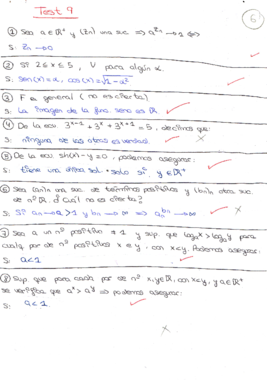 Test 9
6
① Sea a∈ℝ⁺ y (Zn) una suc ⇒ a^Zn → 1 ⇔
S: Zn → 0
② Si 2≤x≤5, V para algún x.
S: sen(x)=u, cos(x)=√1-u²
③ F es general (no es cierta)
S: La imagen de la fina sera es ℝ
④ De la ecu. 3^x-1 + 3^x + 3^x+1 = 5, decimos que:
S: ninguna de las otras es verdad.
⑤ De la ecu sh(x)-y=0, podemos asegurar:
S: tiene una única sol. solo si y∈ℝ⁺
⑥ Sea (an) una suc de términos positivos y (bn) otra suc de nº ℝ. ¿Cuál no es cierta?
S: Si an → a > 1 y bn → ∞ ⇒ an^bn → ∞
⑦ Sea a un nº positivo ≠ 1 y sup. que log_a x > log_a y para cualq. par de nº positivos x e y con x<y. Podemos asegurar:
S: a<1
⑧ Sup. que para cada par de nº x,y∈ℝ, con x<y, y a∈ℝ⁺ se verifica que a^x > a^y ⇒ podemos asegurar:
S: a<1